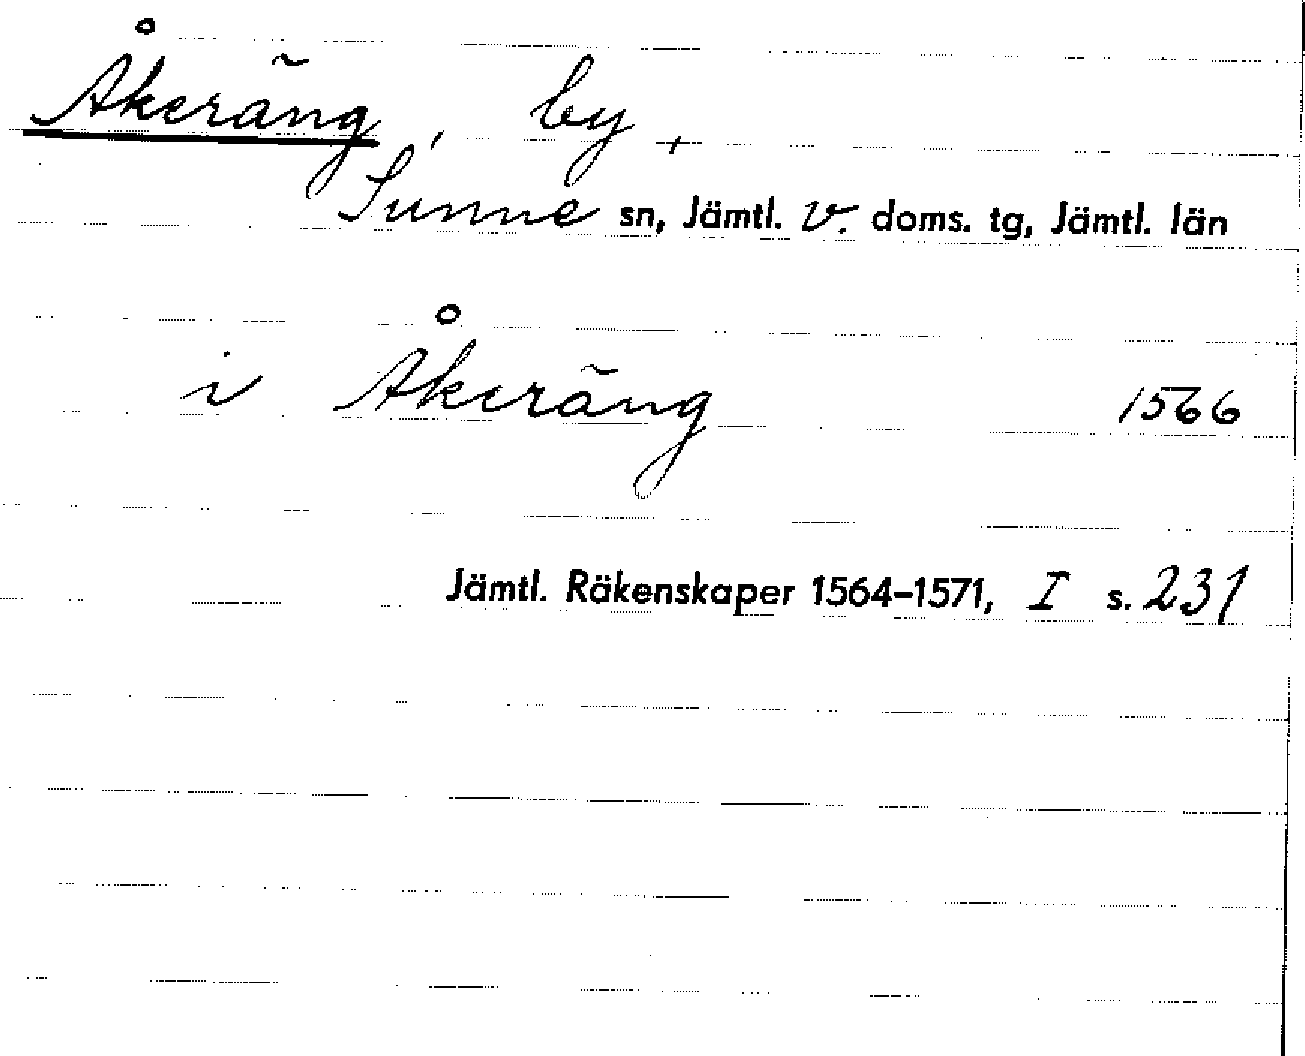 Åkeräng, by,
Sunne sn, Jämtl. v. doms. tg, Jämtl. län
i Åkeräng 1566
Jämtl. Räkenskaper 1564–1571, I s. 231